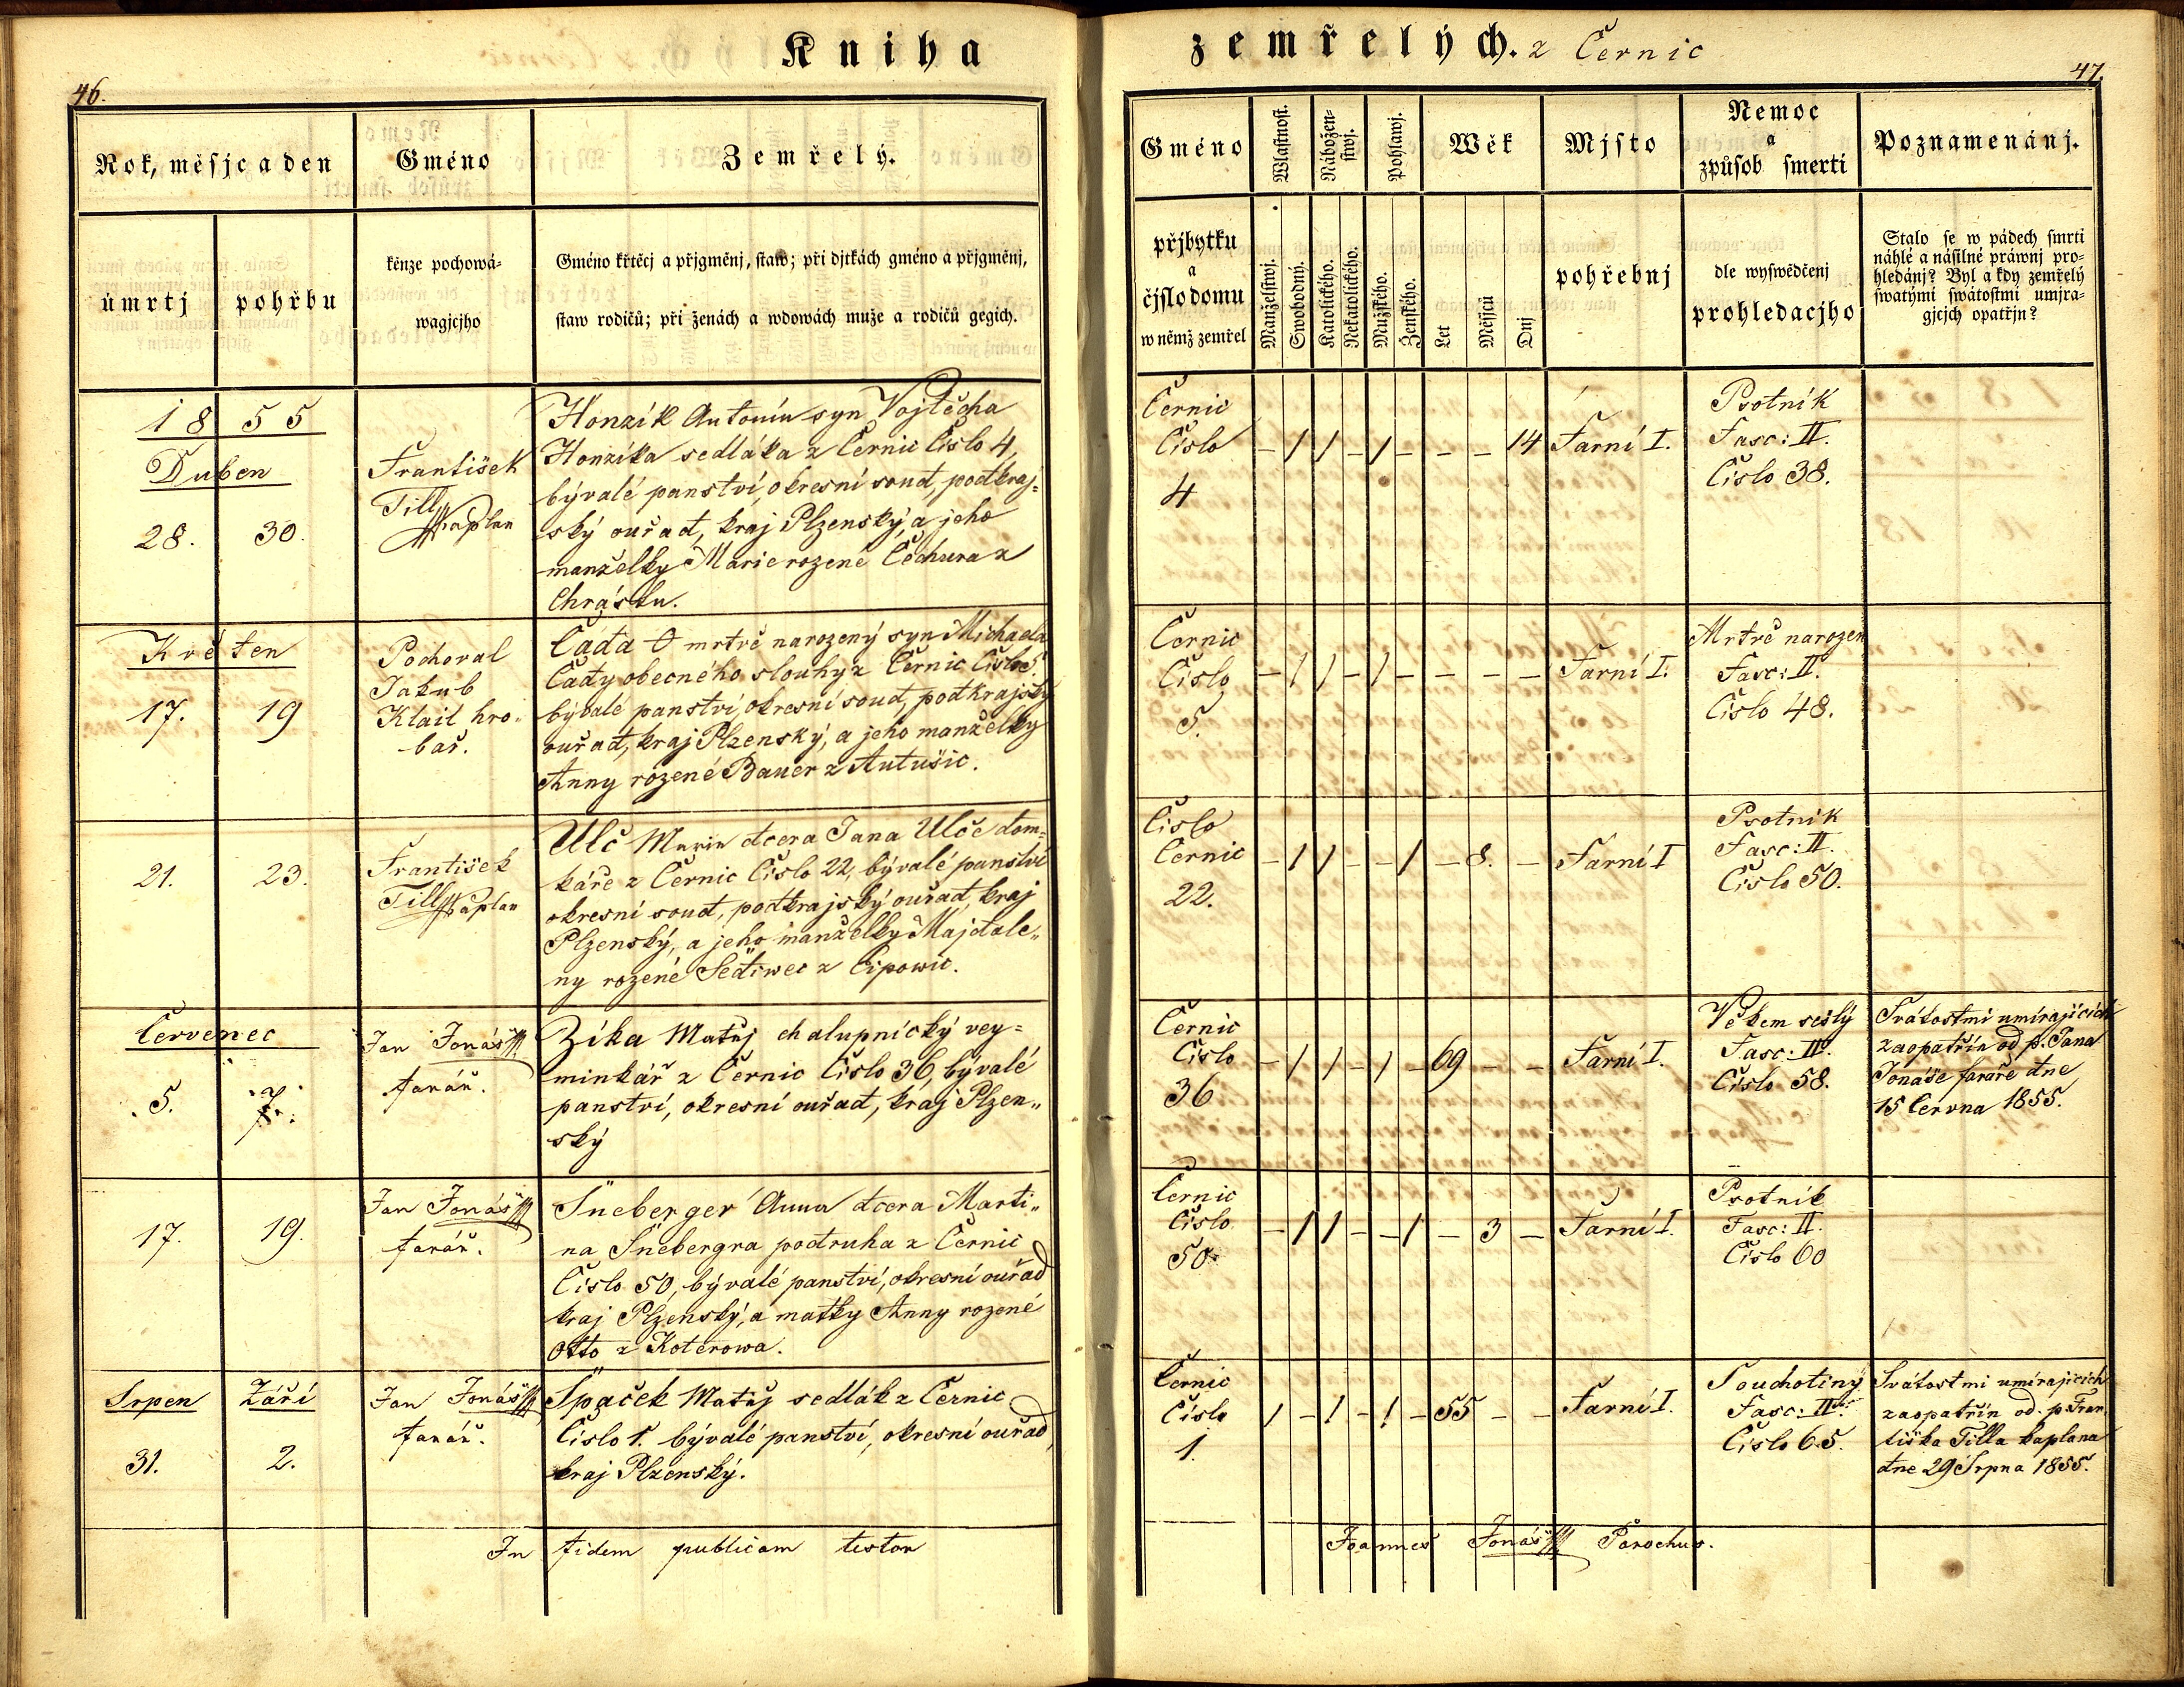 Kniha
zemřelých. z Černic
46.
47.
Rok, měsjc a den
Gméno
Zemřelý.
úmrtj
pohřbu
kěnze pochowá-
wagjcjho
Gméno křtěcj a přjgměnj, staw; při djtkách gméno a přjgměnj,
staw rodičů; při ženách a wdowách muže a rodičů gegich.
Gméno
Wlastnost.
Nábožen-
stwj.
Pohlawj.
Wěk
Mjsto
Nemoc
a
způsob smerti
Poznamenánj.
přjbytku
a
čjslo domu
w němž zemřel
Manželstwj.
Swobodný.
Katolického.
Nekatolického.
Mužského.
Ženského.
Let
Měsjců
Dnj
pohřebnj
dle wyswědčenj
prohledacjho
Stalo se w pádech smrti
náhlé a násilné práwnj pro-
hledánj? Byl a kdy zemřelý
swatými swátostmi umjra-
gjcjch opatřjn?
1855
Duben
28. 30.
František
Till Kaplan
Honzík Antonín syn Vojtěcha
Honzíka sedláka z Černic Číslo 4,
bývalé panství, okresní soud, podkraj-
ský ouřad, kraj Plzenský, a jeho
manželky Marie rozené Čechura z
Chrástu.
Černic
Číslo
4
– 1 1 – 1 – – – 14
Farní I.
Psotník
Fasc: II.
Číslo 38.
Květen
17. 19
Pochoval
Jakub
Klail hro-
bař.
Čada O mrtvě narozený syn Michaela
Čady obecného slouhy z Černic Číslo 5
bývalé panství, okresní soud, podkrajský
ouřad, kraj Plzenský, a jeho manželky
Anny rozené Bauer z Autušic.
Černic
Číslo
5.
– 1 1 – 1 – – – –
Farní I.
Mrtvě narozen
Fasc: II.
Číslo 48.
21. 23.
František
Till Kaplan
Ulč Marie dcera Jana Ulče dom-
káře z Černic Číslo 22, bývalé panství
okresní soud, podkrajský ouřad, kraj
Plzenský, a jeho manželky Majdale-
ny rozené Šediwec z Lipowic.
Číslo
Černic
22.
– 1 1 – – 1 – 8. –
Farní I
Psotník
Fasc: II.
Číslo 50.
Červenec
5. 7.
Jan Jonáš
farář.
Zíka Matěj chalupnický vey-
minkář z Černic Číslo 36, bývalé
panství, okresní ouřad, kraj Plzen-
ský
Černic
Číslo
36
– 1 1 – 1 – 69 – –
Farní I.
Věkem sešlý
Fasc: II.
Číslo 58.
Svátostmi umírajících
zaopatřín od p. Jana
Jonáše faráře dne
15 Června 1855.
17. 19.
Jan Jonáš
farář.
Šneberger Anna dcera Marti-
na Šnebergra podruha z Černic
Číslo 50, bývalé panství, okresní ouřad
kraj Plzenský, a matky Anny rozené
Otto z Koterowa.
Černic
Číslo
50.
– 1 1 – – 1 – 3 –
Farní I.
Psotník
Fasc: II.
Číslo 60
Srpen Září
31. 2.
Jan Jonáš
farář.
Špaček Matěj sedlák z Černic
Číslo 1. bývalé panství, okresní ouřad,
kraj Plzenský.
Černic
Číslo
1.
1 – 1 – 1 – 55 – –
Farní I.
Souchotiny
Fasc: II.
Číslo 65.
Svátostmi umírajících
zaopatřín od p. Fran-
tiška Tilla kaplana
dne 29 Srpna 1855.
In fidem publicam testor
Joannes Jonáš Parochus.